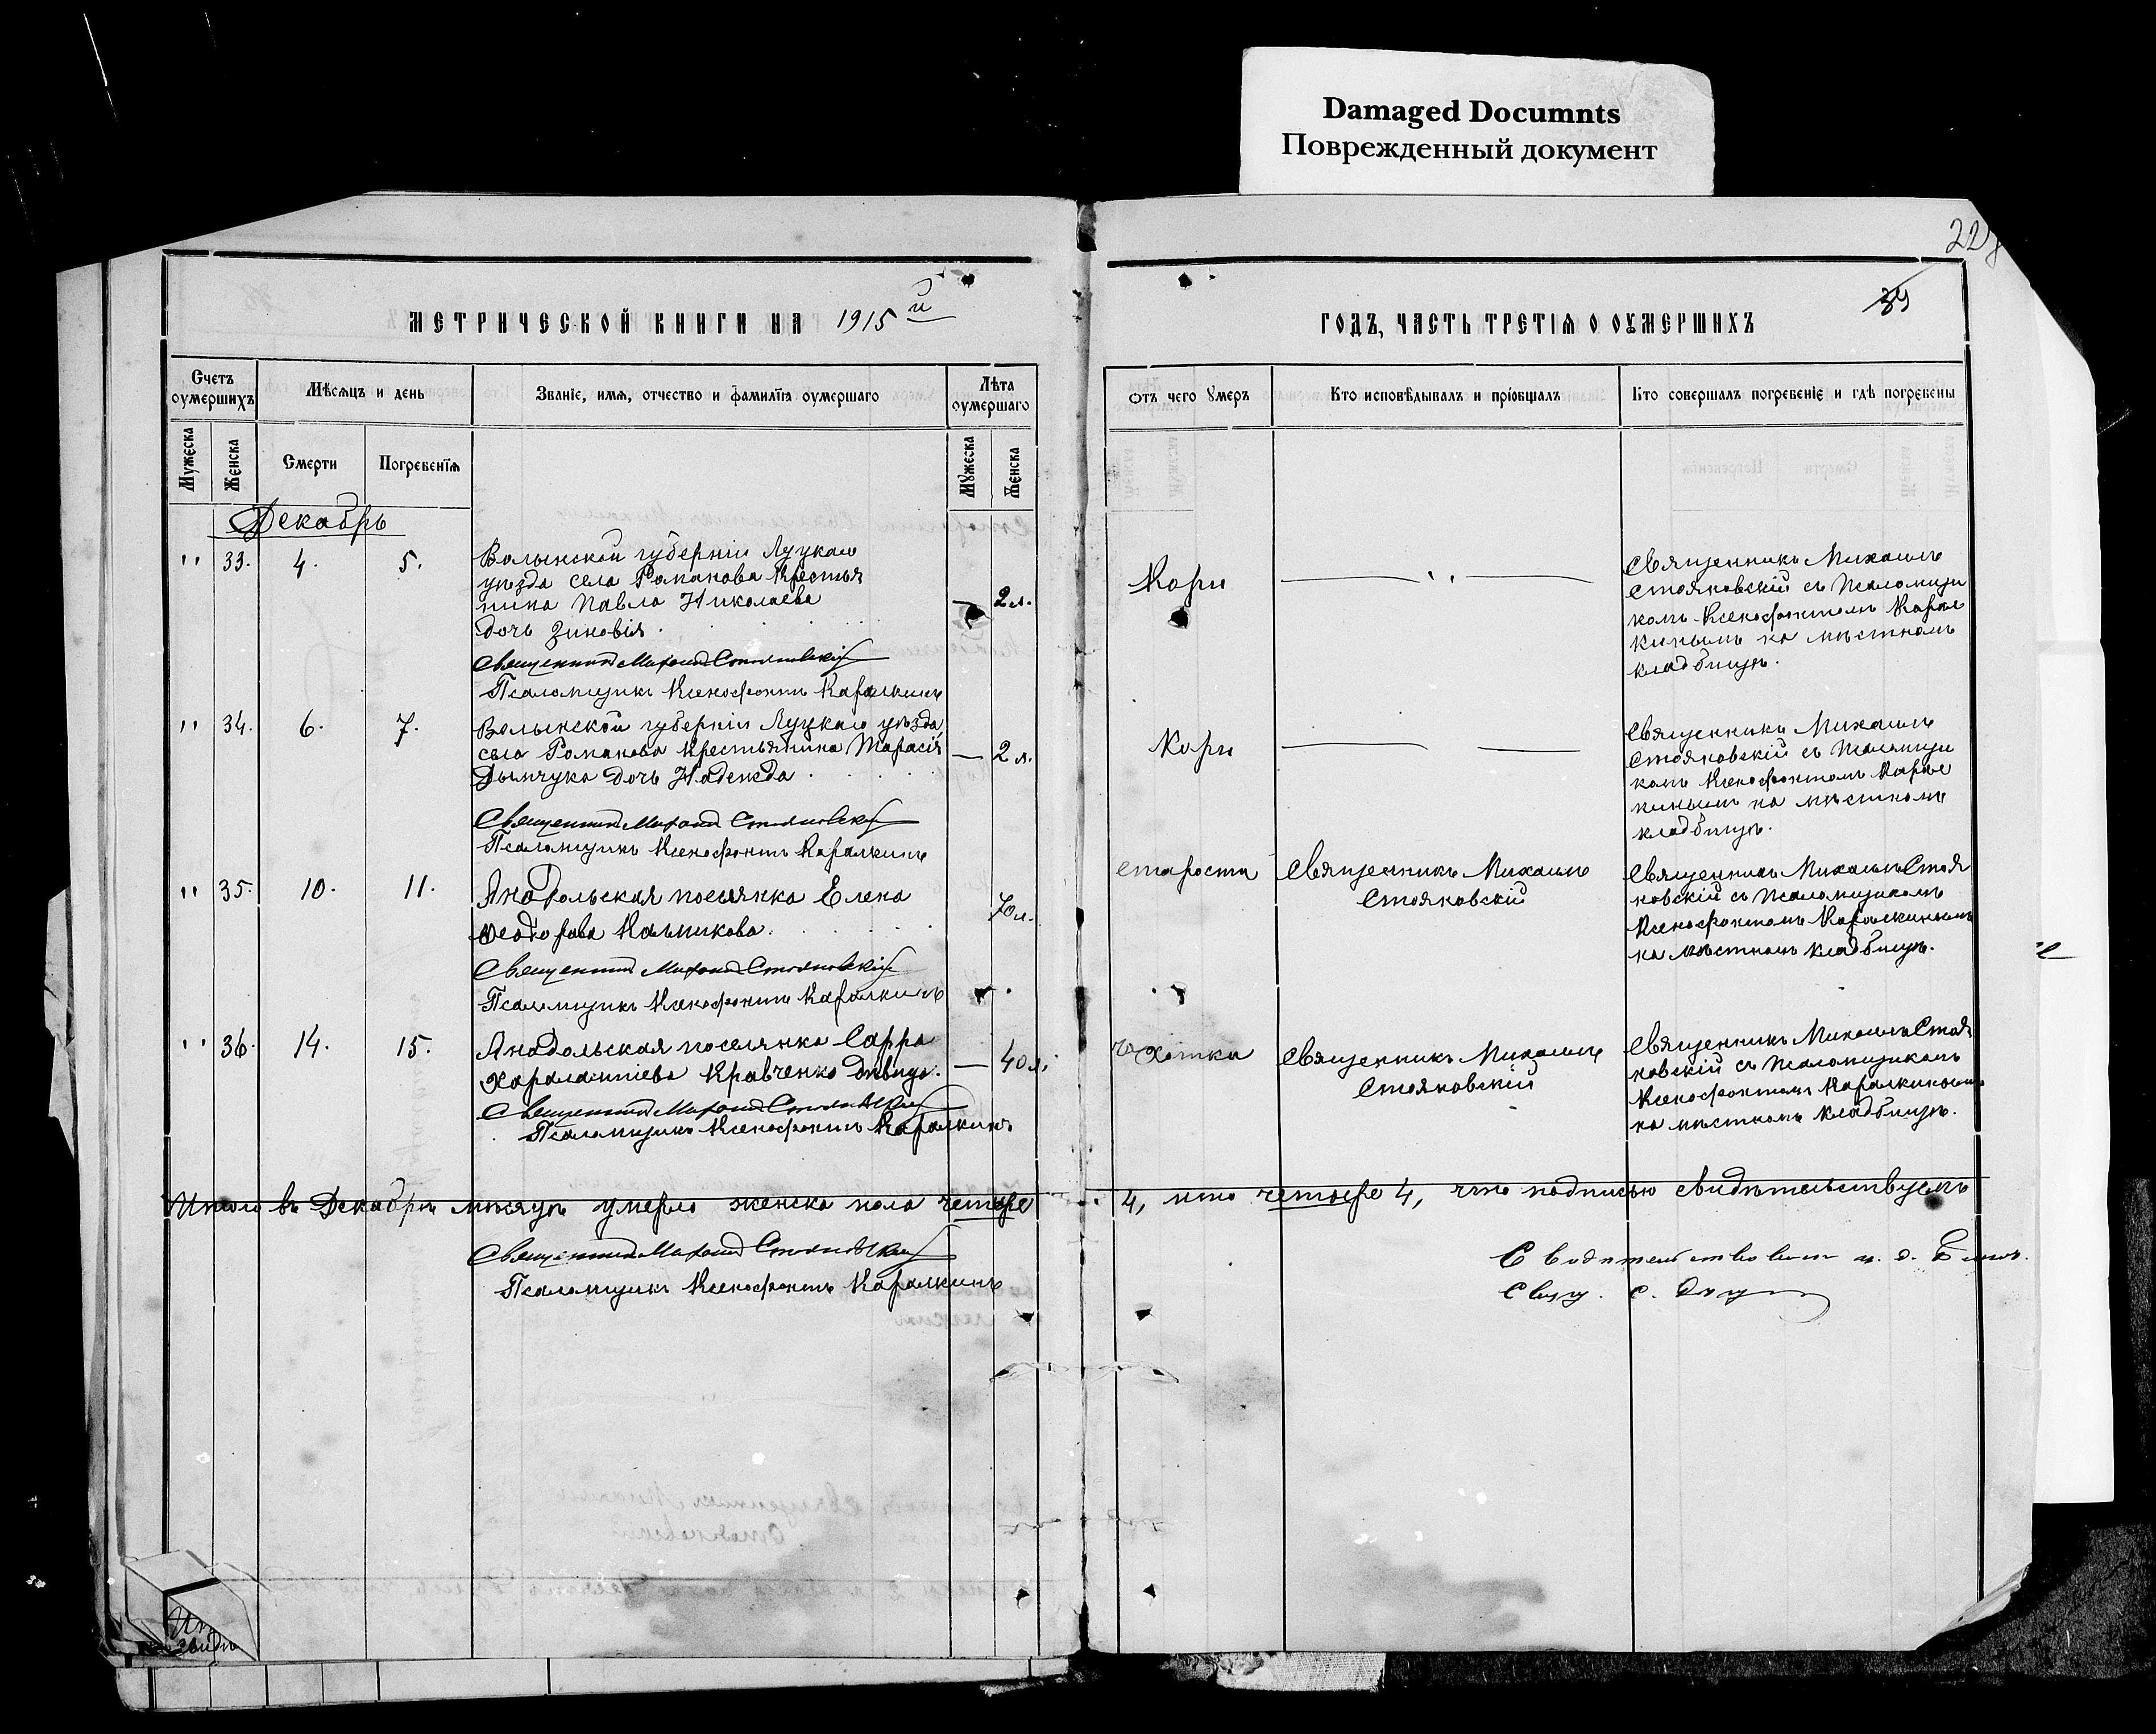 Damaged Documnts
Поврежденный документ
39
МЕТРИЧЕСКОЙ КНИГИ НА 1915й
ГОДЪ, ЧАСТЬ ТРЕТІЯ О ОУМЕРШИХЪ
Счетъ оумершихъ
Мѣсяцъ и день
Званіе, имя, отчество и фамилія оумершаго
Лѣта оумершаго
Мужеска
Женска
Смерти
Погребенія
Мужеска
Женска
Отъ чего умеръ
Кто исповѣдывалъ и пріобщалъ
Кто совершалъ погребеніе и гдѣ погребены
Декабрь
" 33. 4. 5.
Волынской губерніи Луцкаго
уѣзда села Романова крестья
нина Павла Николаева
дочь Зиновія.
— 2 л.
Священникъ Михаилъ Стояновскій
Псаломщикъ Ксенофонтъ Каралкинъ
Кори
— " —
Священникъ Михаилъ
Стояновскій съ Псаломщи
комъ Ксенофонтомъ Карал
кинымъ на мѣстномъ
кладбищѣ.
" 34. 6. 7.
Волынской губерніи Луцкаго уѣзда
села Романова крестьянина Тарасія
Дымчука дочь Надежда
— 2 л.
Священникъ Михаилъ Стояновскій
Псаломщикъ Ксенофонтъ Каралкинъ
Кори
— —
Священникъ Михаилъ
Стояновскій съ Псаломщи
комъ Ксенофонтомъ Карал
кинымъ на мѣстномъ
кладбищѣ.
" 35. 10. 11.
Анадольская поселянка Елена
Ѳеодорова Кальникова.
70 л.
Священникъ Михаилъ Стояновскій
Псаломщикъ Ксенофонтъ Каралкинъ
Старости
Священникъ Михаилъ
Стояновскій
Священникъ Михаилъ Стоя
новскій съ Псаломщикомъ
Ксенофонтомъ Каралкинымъ
на мѣстномъ кладбищѣ.
" 36. 14. 15.
Анадольская поселянка Сарра
Харалампіева Кравченко дѣвица.
— 40 л.
Священникъ Михаилъ Стояновскій
Псаломщикъ Ксенофонтъ Каралкинъ
Чахотка
Священникъ Михаилъ
Стояновскій
Священникъ Михаилъ Стоя
новскій съ Псаломщикомъ
Ксенофонтомъ Каралкинымъ
на мѣстномъ кладбищѣ.
Итого въ Декабрѣ мѣсяцѣ умерло женска пола четыре 4, итого четыре 4, что подписью свидѣтельствуемъ
Священникъ Михаилъ Стояновскій
Псаломщикъ Ксенофонтъ Каралкинъ
Свидѣтельствовалъ и. д. Благ.
Свящ. С.